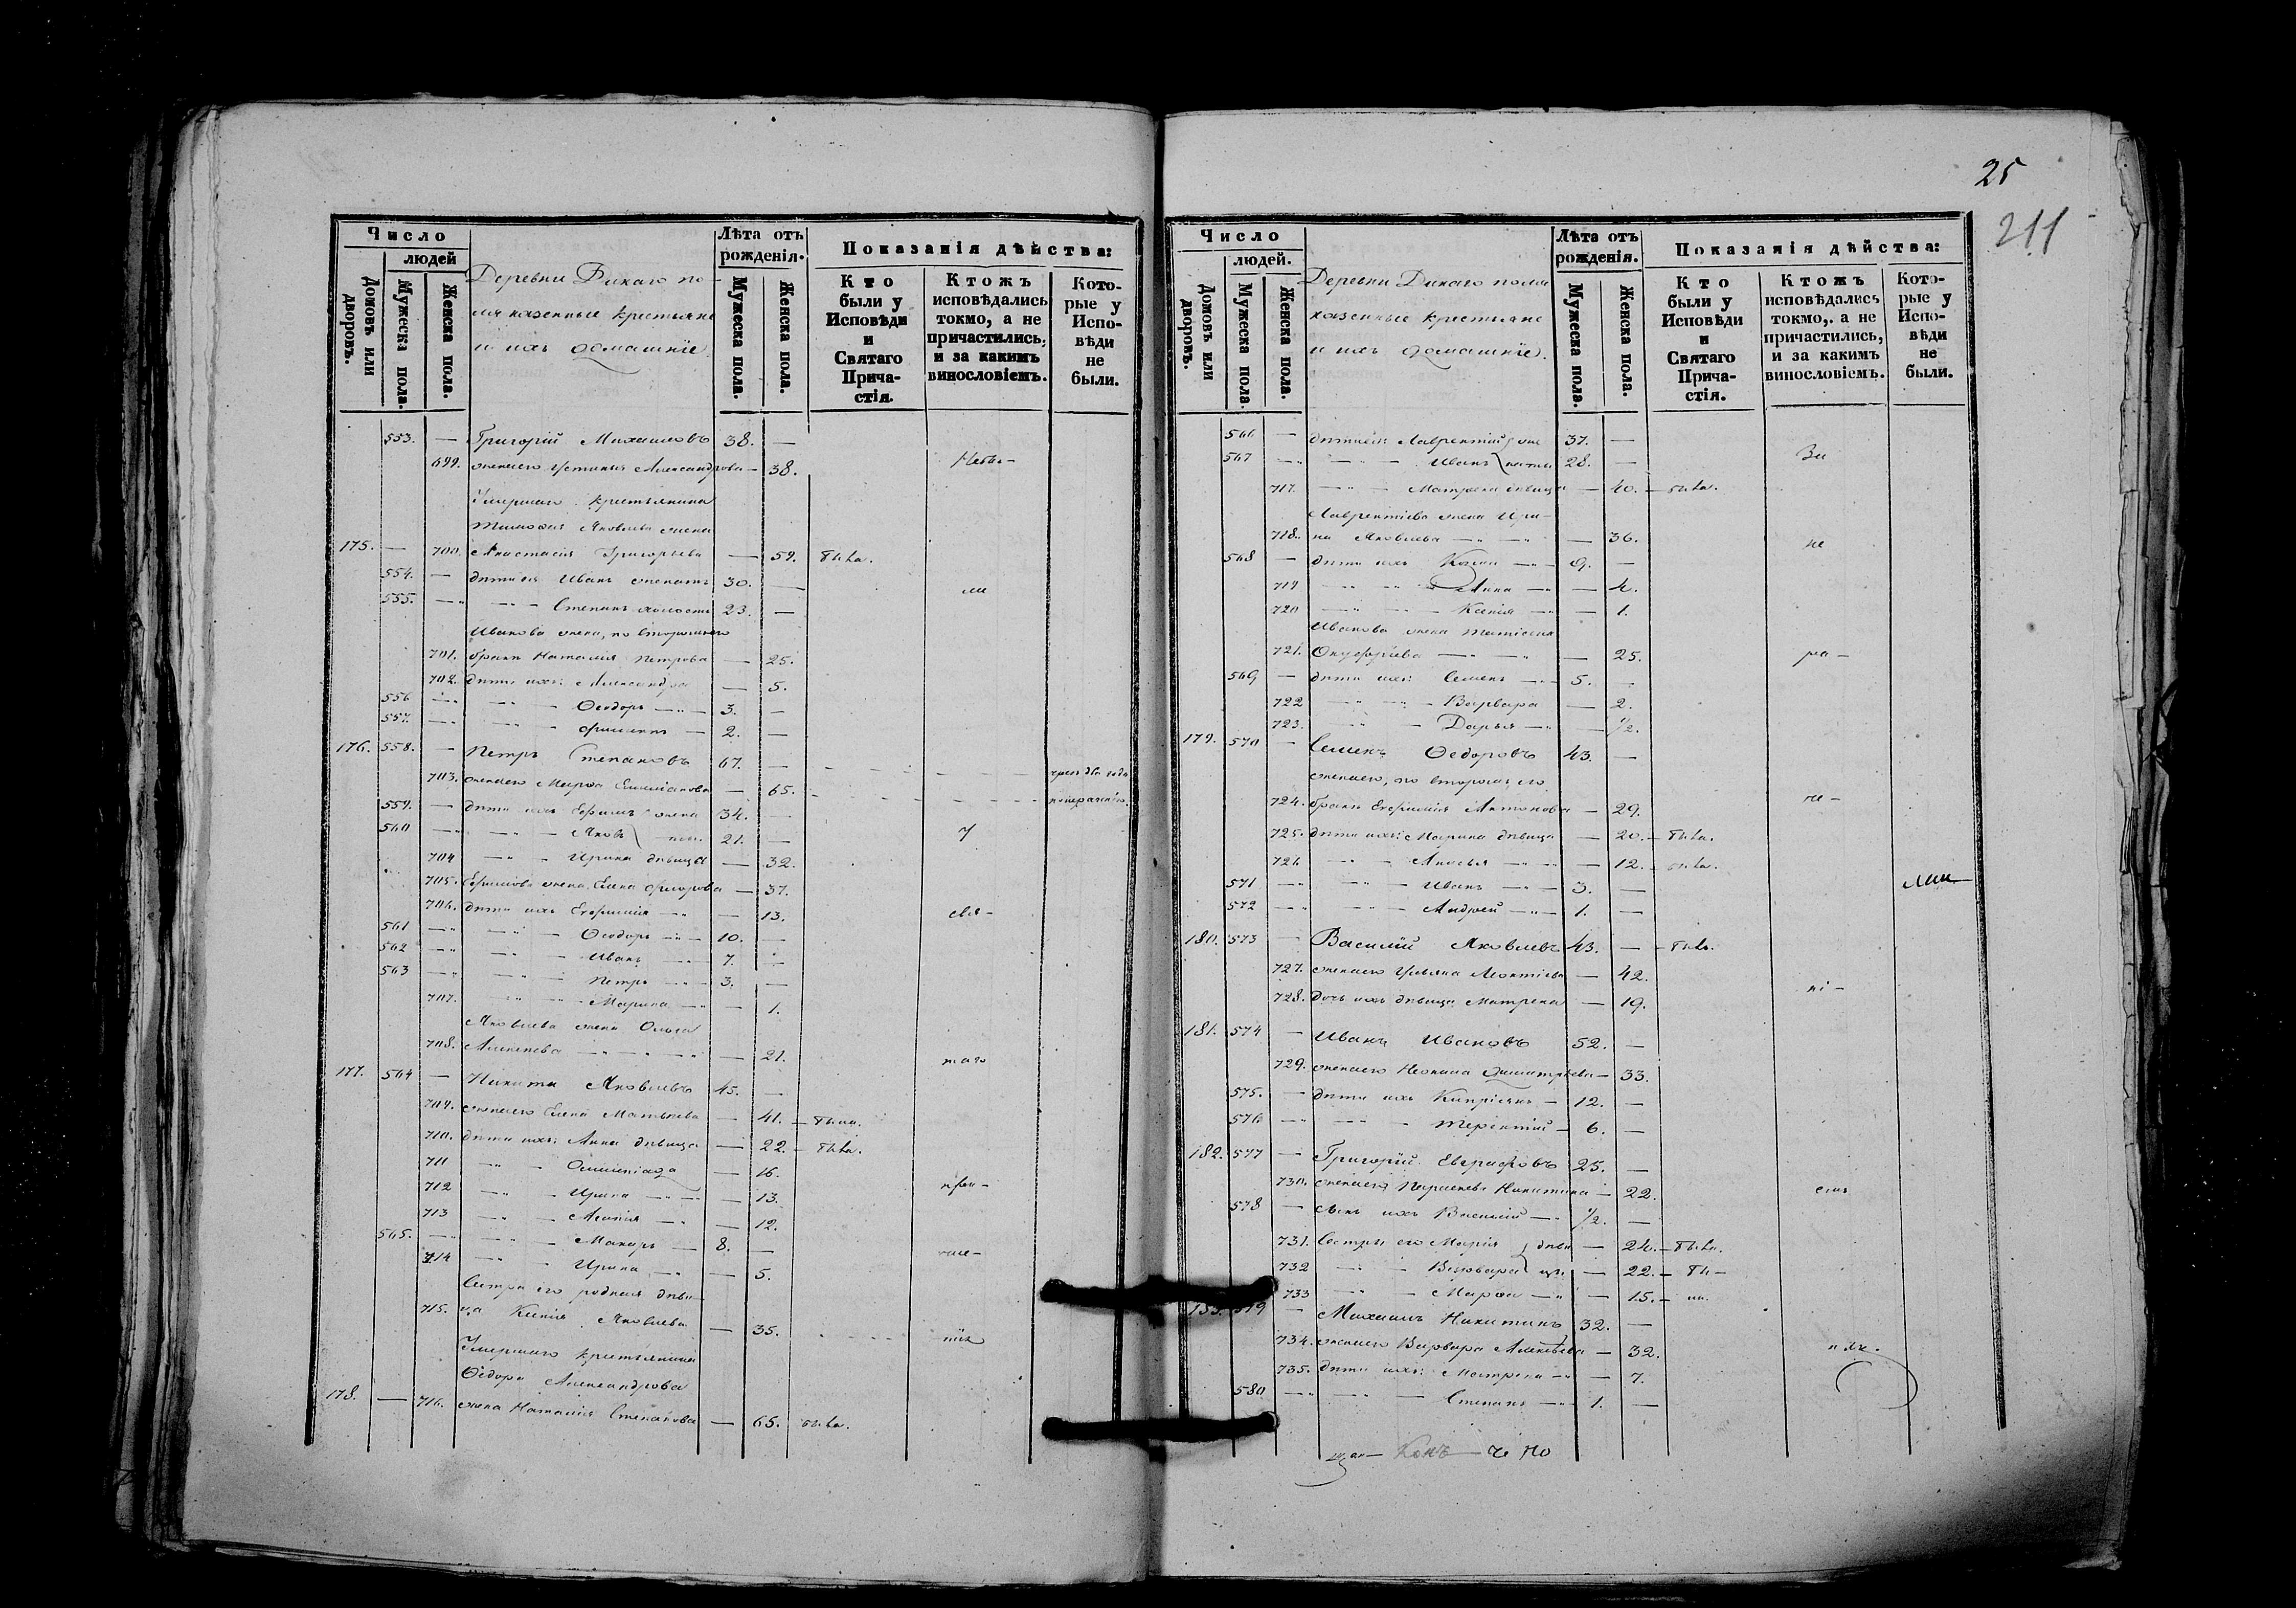 25
211
Число
людей
Домовъ или дворовъ.
Мужеска пола.
Женска пола.
Деревни Дикаго по-
ля казенные крестьяне
и ихъ домашніе.
Лѣта отъ рожденія.
Мужеска пола.
Женска пола.
Показанія дѣйства:
Кто были у Исповѣди и Святаго Прича-стія.
Ктожъ исповѣдались токмо, а не причастились, и за какимъ винословіемъ.
Кото-рые у Испо-вѣди не были.
553. — Григорій Михаиловъ 38. —
699. жена его Устинья Александрова — 38.
Умершаго крестьянина
Тимофея Яковлева жена
175. — 700. Анастасія Григорьева — 59. была.
554. — дѣти ея Иванъ женатъ 30. — ли
555. — Степанъ холостъ 23. —
Иванова жена, по второму его
701. браку Наталія Петрова — 25.
702. дѣти ихъ: Александра — 5.
556 — Ѳеодоръ — 3. —
557. — Филиппъ — 2. —
176. 558. — Петръ Степановъ 67. —
703. жена его Марѳа Емиліанова — 65.
559. — дѣти ихъ Ефимъ жена 34. —
560 — Яковъ ты. 21. — у
704 — Ирина дѣвица — 32.
705. Ефимова жена Елена Григорова — 37.
706. дѣти ихъ Евфимія — 13. свя-
561 — Ѳеодоръ — 10. —
562 — Иванъ — 7. —
563 — Петръ — 3. —
707. — Марина — 1.
Яковлева жена Ольга
708. Алексеева — 21. таго
177. 564 — Никита Яковлевъ 45. —
709. жена его Елена Матвѣева — 41. — была.
710. дѣти ихъ: Анна дѣвица — 22. — была.
711 — Олимпіада — 16.
712 — Ирина — 13. при-
713 — Агапія — 12.
565. — Макаръ — 8. —
714 — Ирина — 5. час-
Сестра его родная дѣви-
715. ца Ксенія Яковлева — 35. тія
Умершаго крестьянина
Ѳедора Александрова
178. — 716. жена Наталія Степанова — 65. была.
Число
людей.
Домовъ или дворовъ.
Мужеска пола.
Женска пола.
Деревни Дикаго поля
казенные крестьяне
и ихъ домашніе.
Лѣта отъ рожденія.
Мужеска пола.
Женска пола.
Показанія дѣйства:
Кто были у Исповѣди и Святаго Прича-стія.
Ктожъ исповѣдались токмо, а не причастились, и за какимъ винословіемъ.
Кото-рые у Испо-вѣди не были.
566 — дѣти ея: Лаврентій же 37. —
567 — Иванъ наты 28. — За
717. — Матрена дѣвица — 40. — была.
Лаврентіева жена Ири-
718. на Яковлева — 36. не
568 — дѣти ихъ Козма — 9. —
719 — Анна — 4.
720 — Ксенія — 1.
Иванова жена Татіана
721. Онуфріева — 25. ра-
569 — дѣти ихъ: Семенъ — 5. —
722 — Варвара — 2.
723. — Дарья — 1/2.
179. 570 — Семенъ Ѳедоровъ 43. —
жена его, по второму его
724. браку Евфимія Антонова — 29. че-
725. дѣти ихъ: Марина дѣвица — 20. — была.
726 — 12. — была.
571 — Иванъ — 3. —
572 — Андрей — 1. —
180. 573 — Василій Яковлевъ 43. — былъ.
727. жена его Ульяна Леонтіева — 42.
728. дочь ихъ дѣвица Матрена — 19. ні-
181. 574 — Иванъ Ивановъ 52. —
729. жена его Неонила Димитріева — 33.
575. — дѣти ихъ Кипріянъ — 12. —
576 — Терентій — 6. —
182. 577 — Григорій Евграфовъ 25. —
730. жена его Парасковья Никитина — 22. емъ
578 — сынъ ихъ Василій — 1/2. —
731. Сестры его Марія дѣви — 24. — была.
732 — Варвара цы — 22. — бы-
733 — Марѳа — 15. — ла.
183. 579 — Михаилъ Никитинъ 32. —
734. жена его Варвара Алексѣева — 32.
735. дѣти ихъ: Матрена — 7.
580 — Степанъ — 1. —